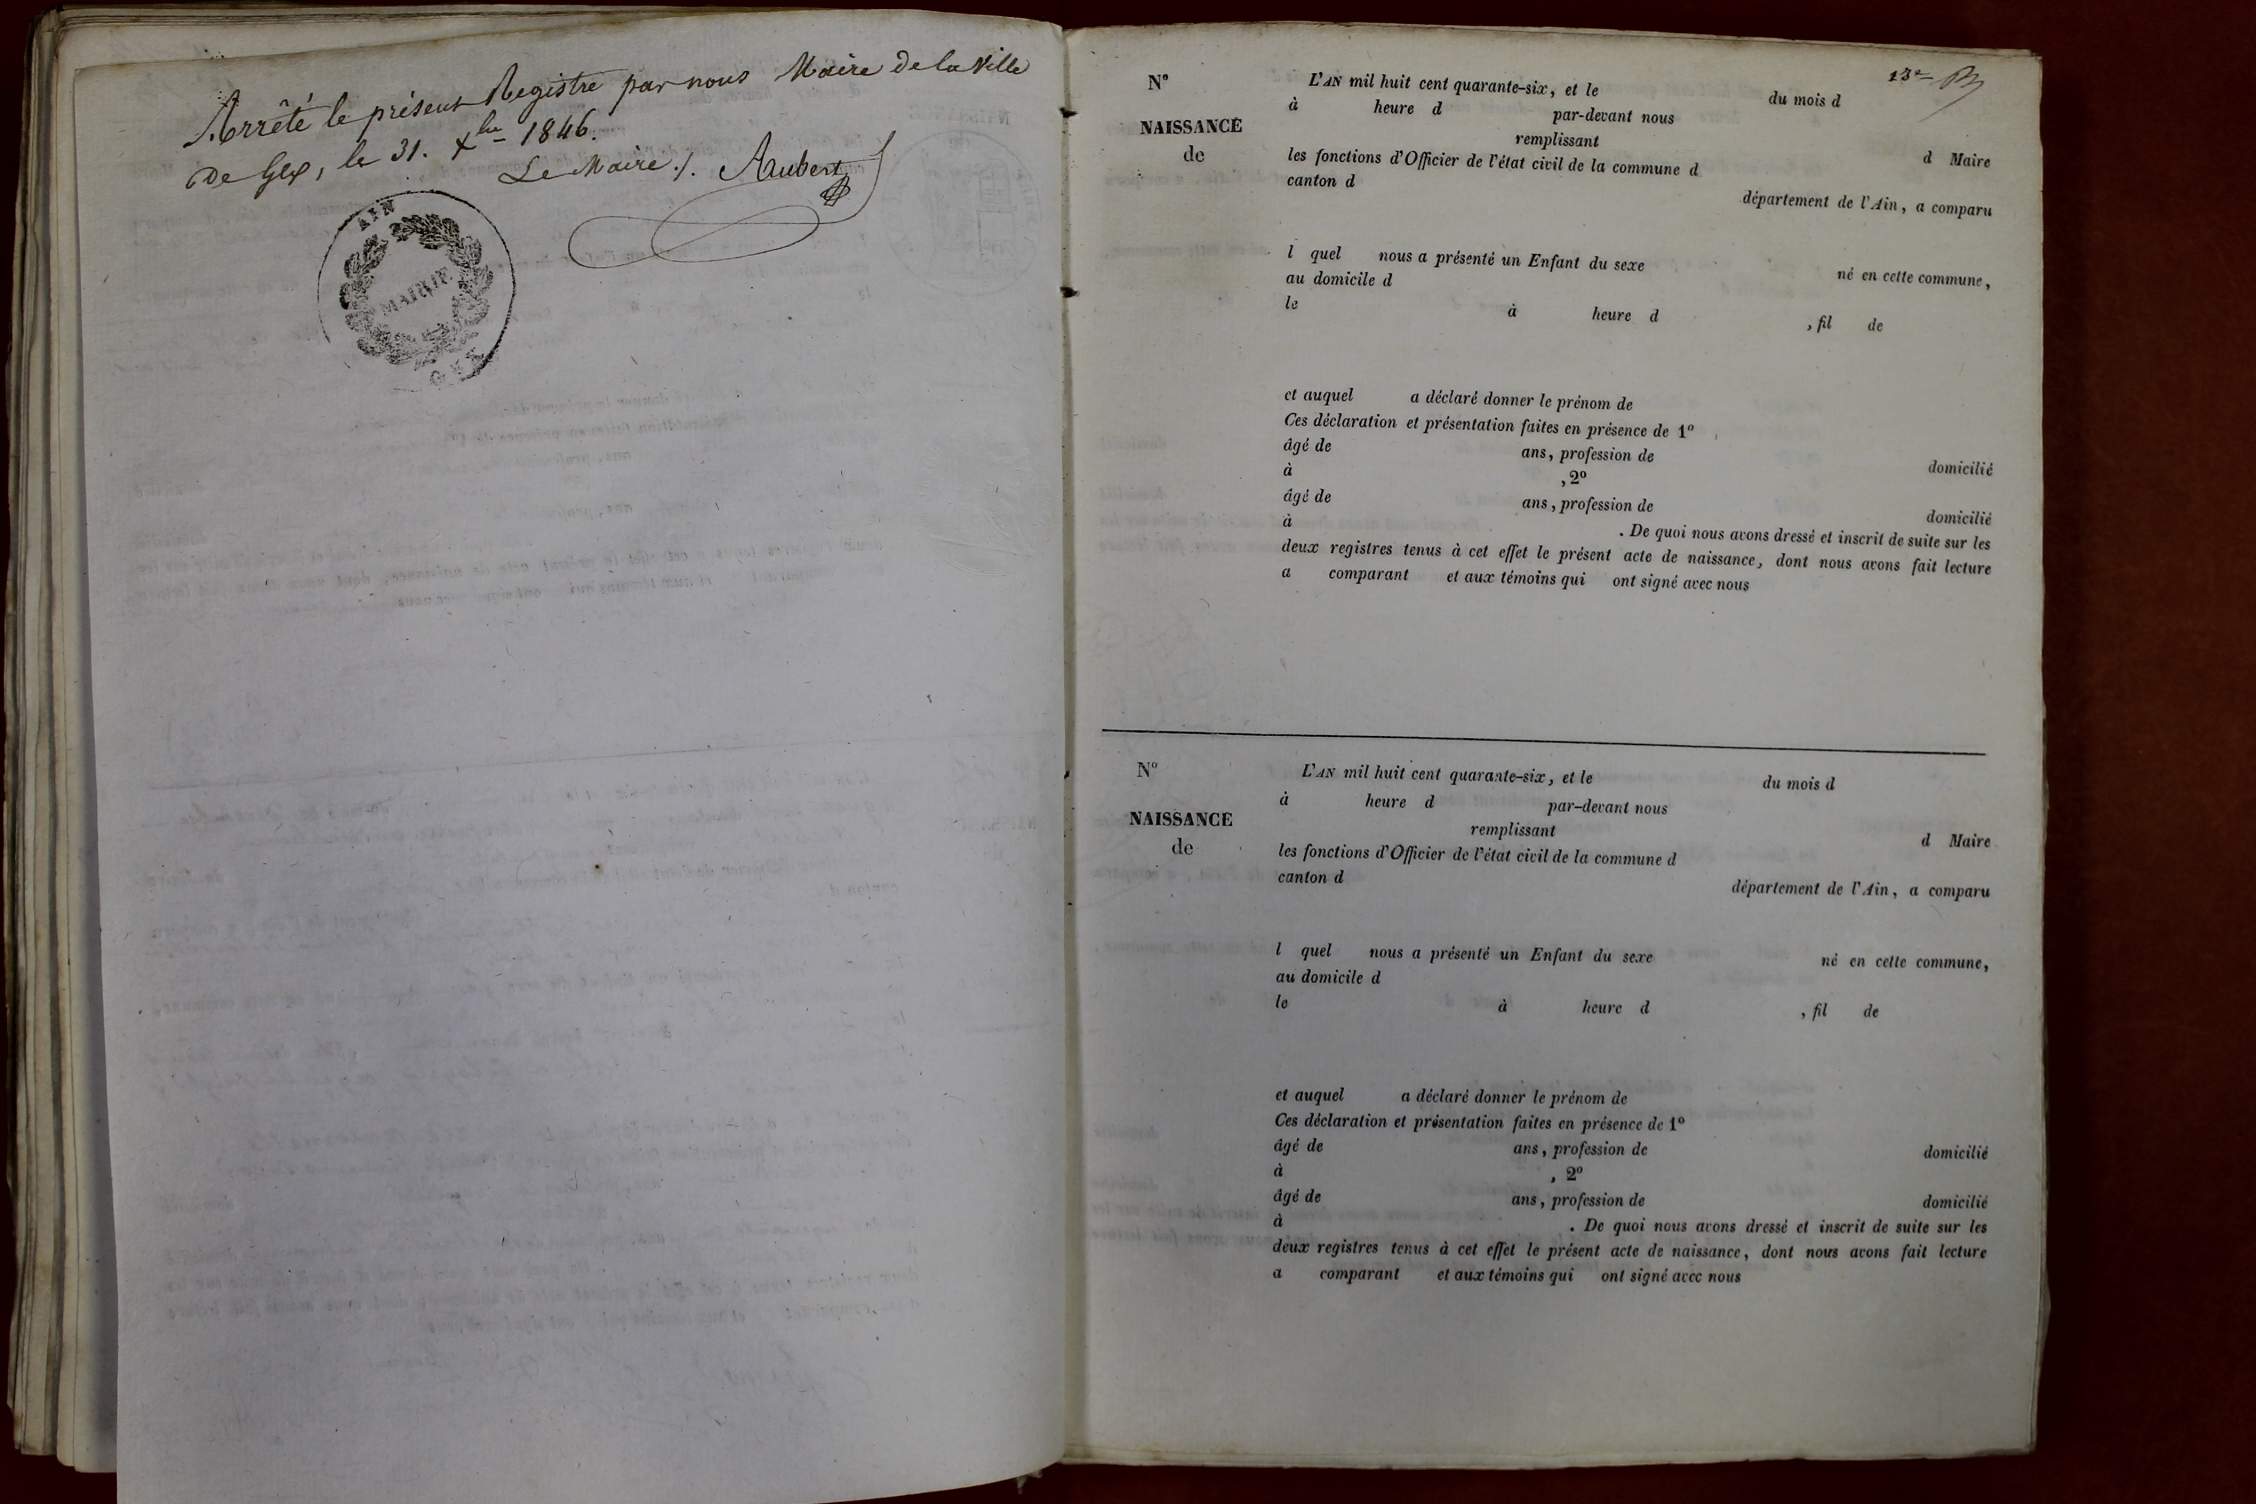 Arrêté le présent Registre par nous Maire de la Ville
de Gex, le 31. Xbre 1846.
Le Maire ./. Aubert
AIN
MAIRIE
GEX
13e
N° L'AN mil huit cent quarante-six, et le du mois d
à heure d par-devant nous
NAISSANCE remplissant d Maire
de les fonctions d'Officier de l'état civil de la commune d
canton d département de l'Ain, a comparu
l quel nous a présenté un Enfant du sexe né en cette commune,
au domicile d
le à heure d , fil de
et auquel a déclaré donner le prénom de
Ces déclaration et présentation faites en présence de 1°
âgé de ans, profession de domicilié
à , 2°
âgé de ans, profession de domicilié
à . De quoi nous avons dressé et inscrit de suite sur les
deux registres tenus à cet effet le présent acte de naissance, dont nous avons fait lecture
a comparant et aux témoins qui ont signé avec nous
N° L'AN mil huit cent quarante-six, et le du mois d
à heure d par-devant nous
NAISSANCE remplissant d Maire
de les fonctions d'Officier de l'état civil de la commune d
canton d département de l'Ain, a comparu
l quel nous a présenté un Enfant du sexe né en cette commune,
au domicile d
le à heure d , fil de
et auquel a déclaré donner le prénom de
Ces déclaration et présentation faites en présence de 1°
âgé de ans, profession de domicilié
à , 2°
âgé de ans, profession de domicilié
à . De quoi nous avons dressé et inscrit de suite sur les
deux registres tenus à cet effet le présent acte de naissance, dont nous avons fait lecture
a comparant et aux témoins qui ont signé avec nous